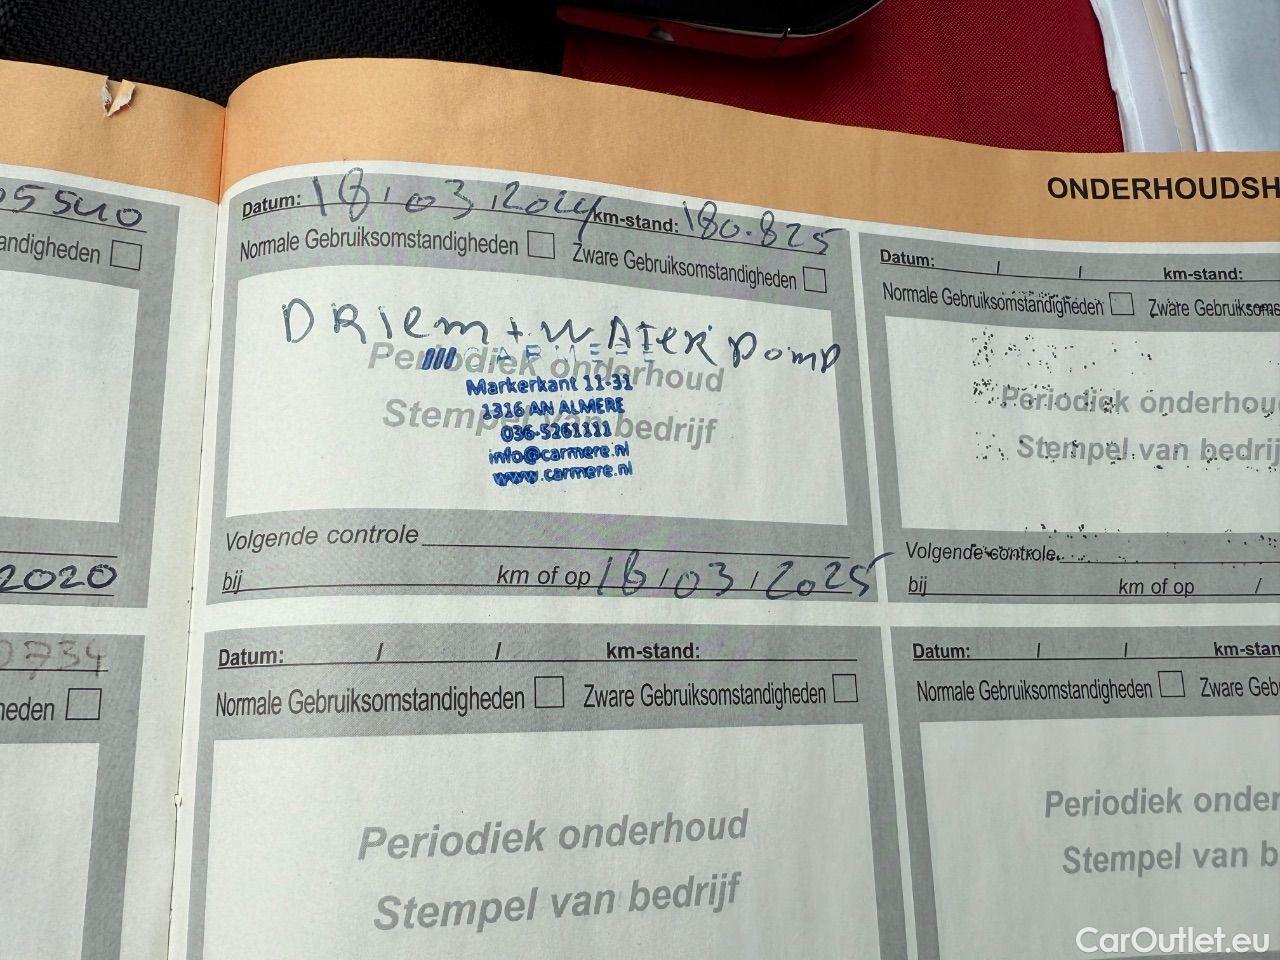 5540
andigheden
2020
0734
heden
ONDERHOUDSH
Datum: 18/03/2024 km-stand: 180.825
Normale Gebruiksomstandigheden Zware Gebruiksomstandigheden
DRiem + WATER pomp
Periodiek onderhoud
CARMERE
Markerkant 11-31
1316 AN ALMERE
Stempel van bedrijf
036-5261111
info@carmere.nl
www.carmere.nl
Volgende controle
bij km of op 18/03/2025
Datum: / / km-stand:
Normale Gebruiksomstandigheden Zware Gebruiksoms
Periodiek onderhou
Stempel van bedrij
Volgende controle
bij km of op /
Datum: / / km-stand:
Normale Gebruiksomstandigheden Zware Gebruiksomstandigheden
Periodiek onderhoud
Stempel van bedrijf
Datum: / / km-stan
Normale Gebruiksomstandigheden Zware Ge
Periodiek onder
Stempel van b
CarOutlet.eu